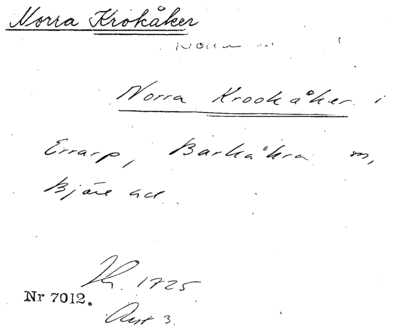 Norra Krokåker
Norra Krookåker i
Errarp, Barkåkra
Bjäre hd.
1725
Nr 7012.